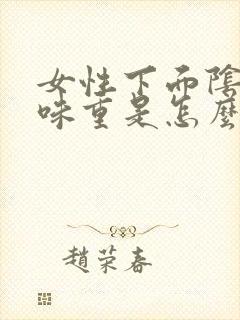 女性下面陰
味重是怎麼
趙荣春